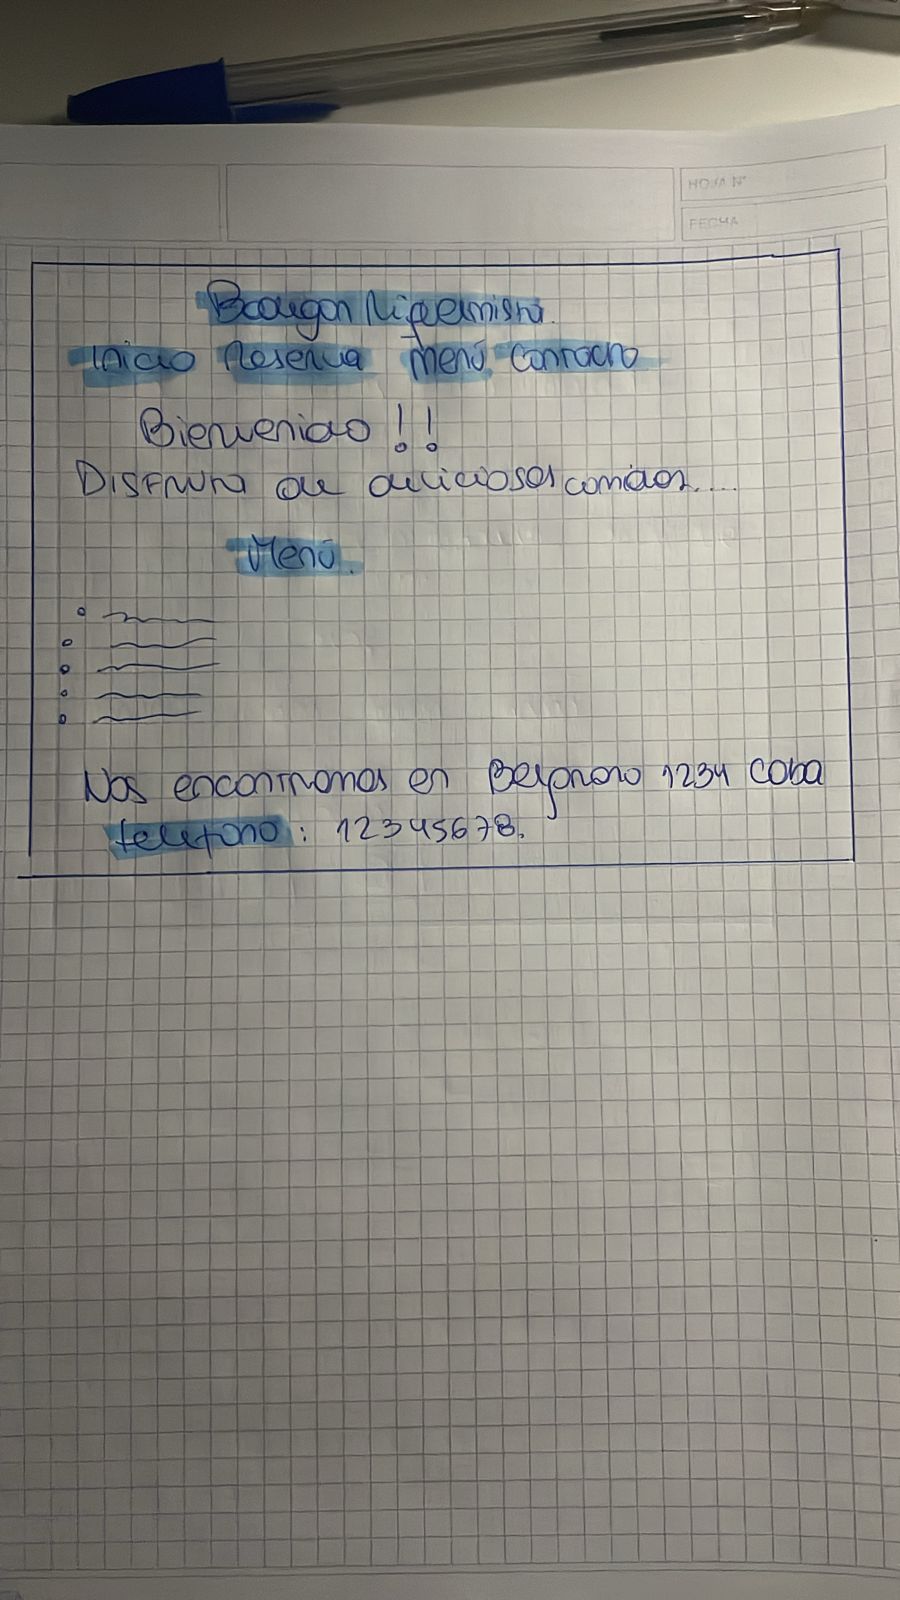 HOJA N°
FECHA
Bodegon
Inicio Reserva Menú Contacto
Bienvenido !!
Disfruta de deliciosas comidas....
Menú.
Nos encontramos en Belgrano 1234 Caba
telefono: 12345678.